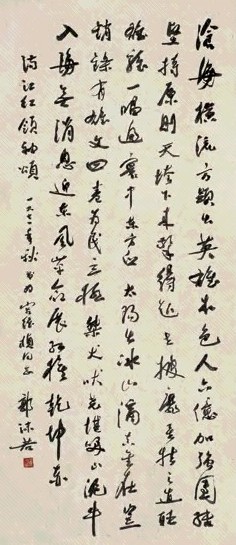 沧海横流方显出英雄本色人六亿加强团结
坚持原则天垮下来擎得起世披靡矣扶之直听
雄鸡一唱遍寰中东方白太阳出冰山滴真金在岂
销铄有雄文四卷为民立极桀犬吠尧堪笑止泥牛
入海无消息迎东风革命展红旗乾坤赤
满江红 领袖颂 一九七一年秋 书为 宫维桢同志 郭沫若